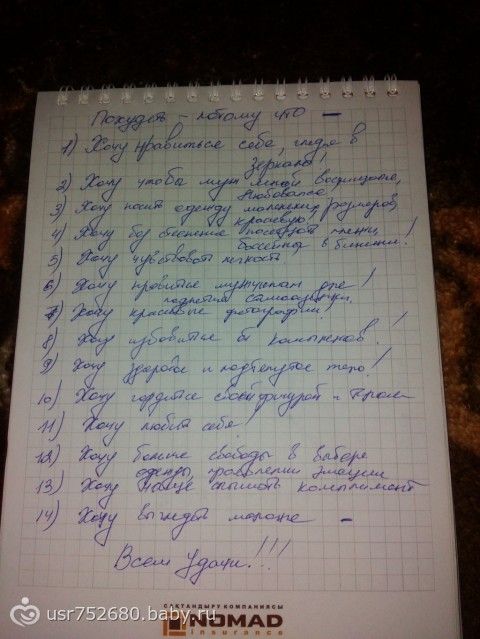 Похудеть - потому что -
1) Хочу нравиться себе, глядя в
зеркало!
2) Хочу чтобы муж мной восхищался,
любовался!
3) Хочу носить одежду маленьких размеров,
красивую!
4) Хочу без стеснения посещать пляжи,
бассейны в бикини!
5) Хочу чувствовать легкость
6) Хочу нравиться мужчинам для
поднятия самооценки!
7) Хочу красивые фотографии!
8) Хочу избавиться от комплексов!
9) Хочу здоровое и подтянутое тело!
10) Хочу гордиться своей фигурой и
11) Хочу любить себя!
12) Хочу больше свободы в выборе
одежды, проявлении эмоции
13) Хочу чаще слышать комплимент
14) Хочу выглядеть моложе -
Всем удачи!!!
САКТАНДЫРУ КОМПАНИЯСЫ
NOMAD
insurance
usr752680.baby.ru